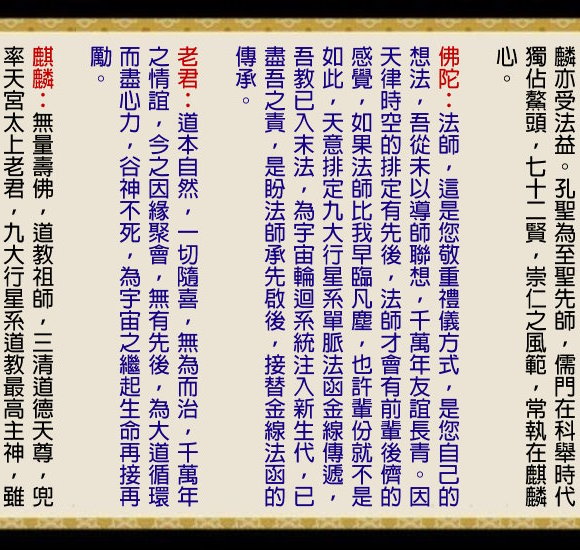 麟亦受法益。孔聖為至聖先師，儒門在科舉時代
獨佔鰲頭，七十二賢，崇仁之風範，常執在麒麟
心。
佛陀：法師，這是您敬重禮儀方式，是您自己的
想法，吾從未以導師聯想，千萬年友誼長青。因
天律時空的排定有先後，法師才會有前輩後儕的
感覺，如果法師比我早臨凡塵，也許輩份就不是
如此，天意排定九大行星系單脈法函金線傳遞，
吾教已入末法，為宇宙輪迴系統注入新生代，已
盡吾之責，是盼法師承先啟後，接替金線法函的
傳承。
老君：道本自然，一切隨喜，無為而治，千萬年
之情誼，今之因緣聚會，無有先後，為大道循環
而盡心力，谷神不死，為宇宙之繼起生命再接再
勵。
麒麟：無量壽佛，道教祖師，三清道德天尊，兜
率天宮太上老君，九大行星系道教最高主神，雖